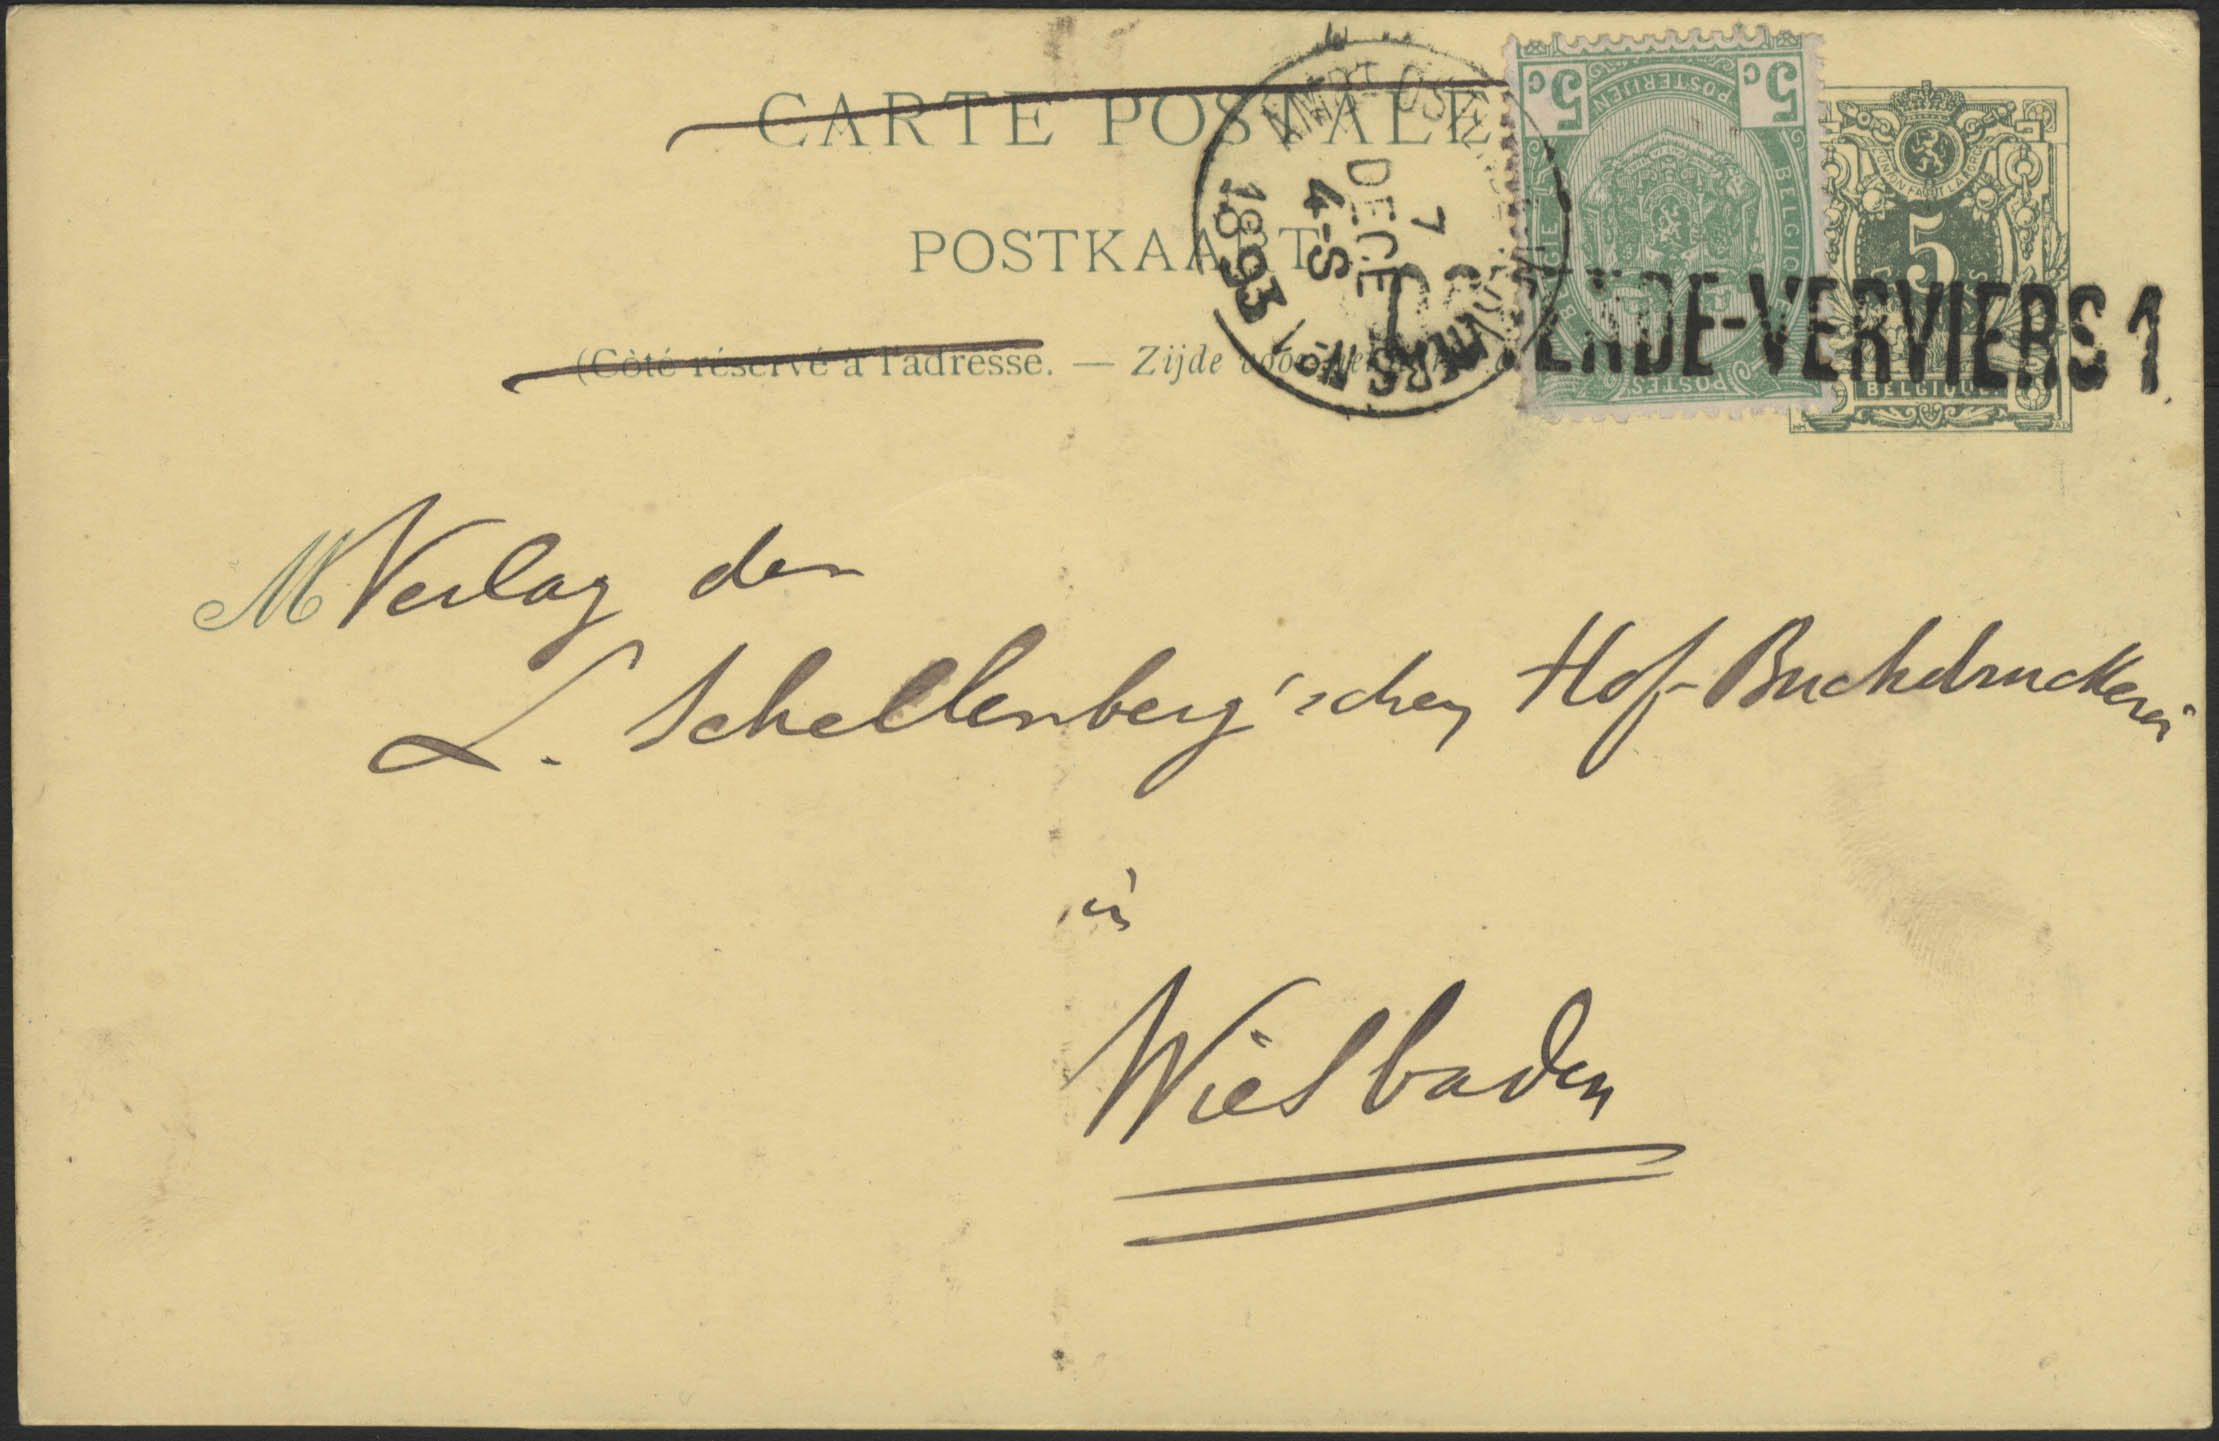 CARTE POSTALE
POSTKAART
(Côté réservé à l'adresse. — Zijde
7
DECE
4-S
1893
Nº 1
5c 5c
POSTERIJEN
BELGIQUE
POSTES
5
BELGIQUE
ENDE-VERVIERS 1.
M Verlag der
L. Schellenberg'schen Hof-Buchdruckerei
in
Wiesbaden